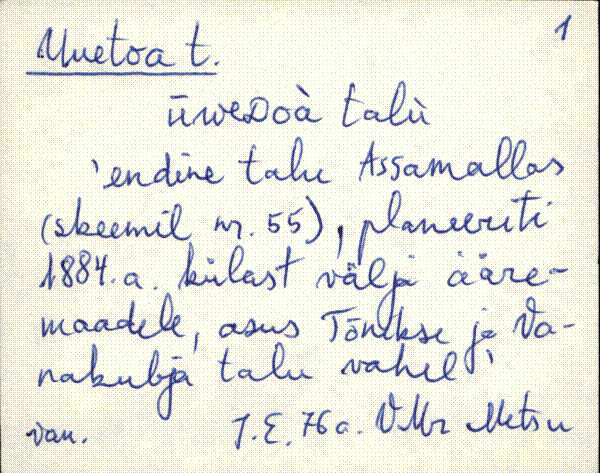 1
Uuetoa t.
ūweᴅoà talù
'endine talu Assamallas
(skeemil nr. 55), planeeriti
1884. a. külast välja ääre-
maadele, asus Tõnikse ja Va-
nakubja talu vahel'
van. J. E. 76 a. VMr Metsu